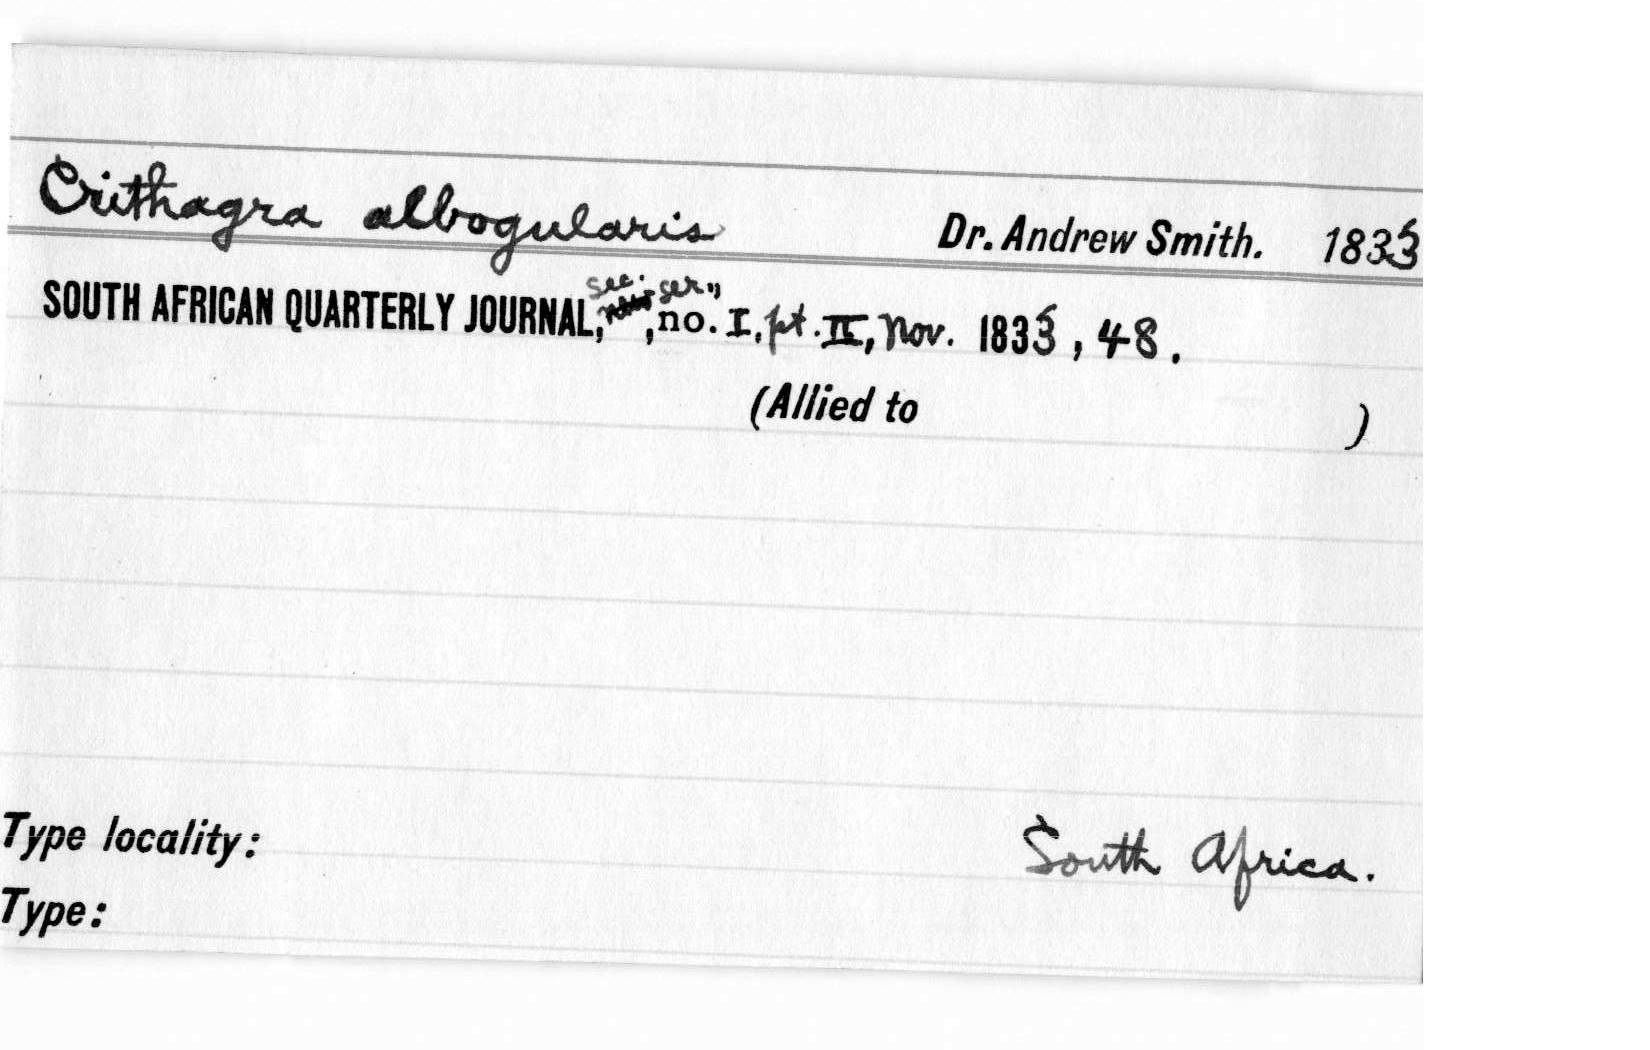 Crithagra albogularis Dr. Andrew Smith. 1833
sec. ser.,
SOUTH AFRICAN QUARTERLY JOURNAL, , no. I, pt. II, Nov. 1833, 48.
(Allied to )
Type locality: South Africa.
Type: